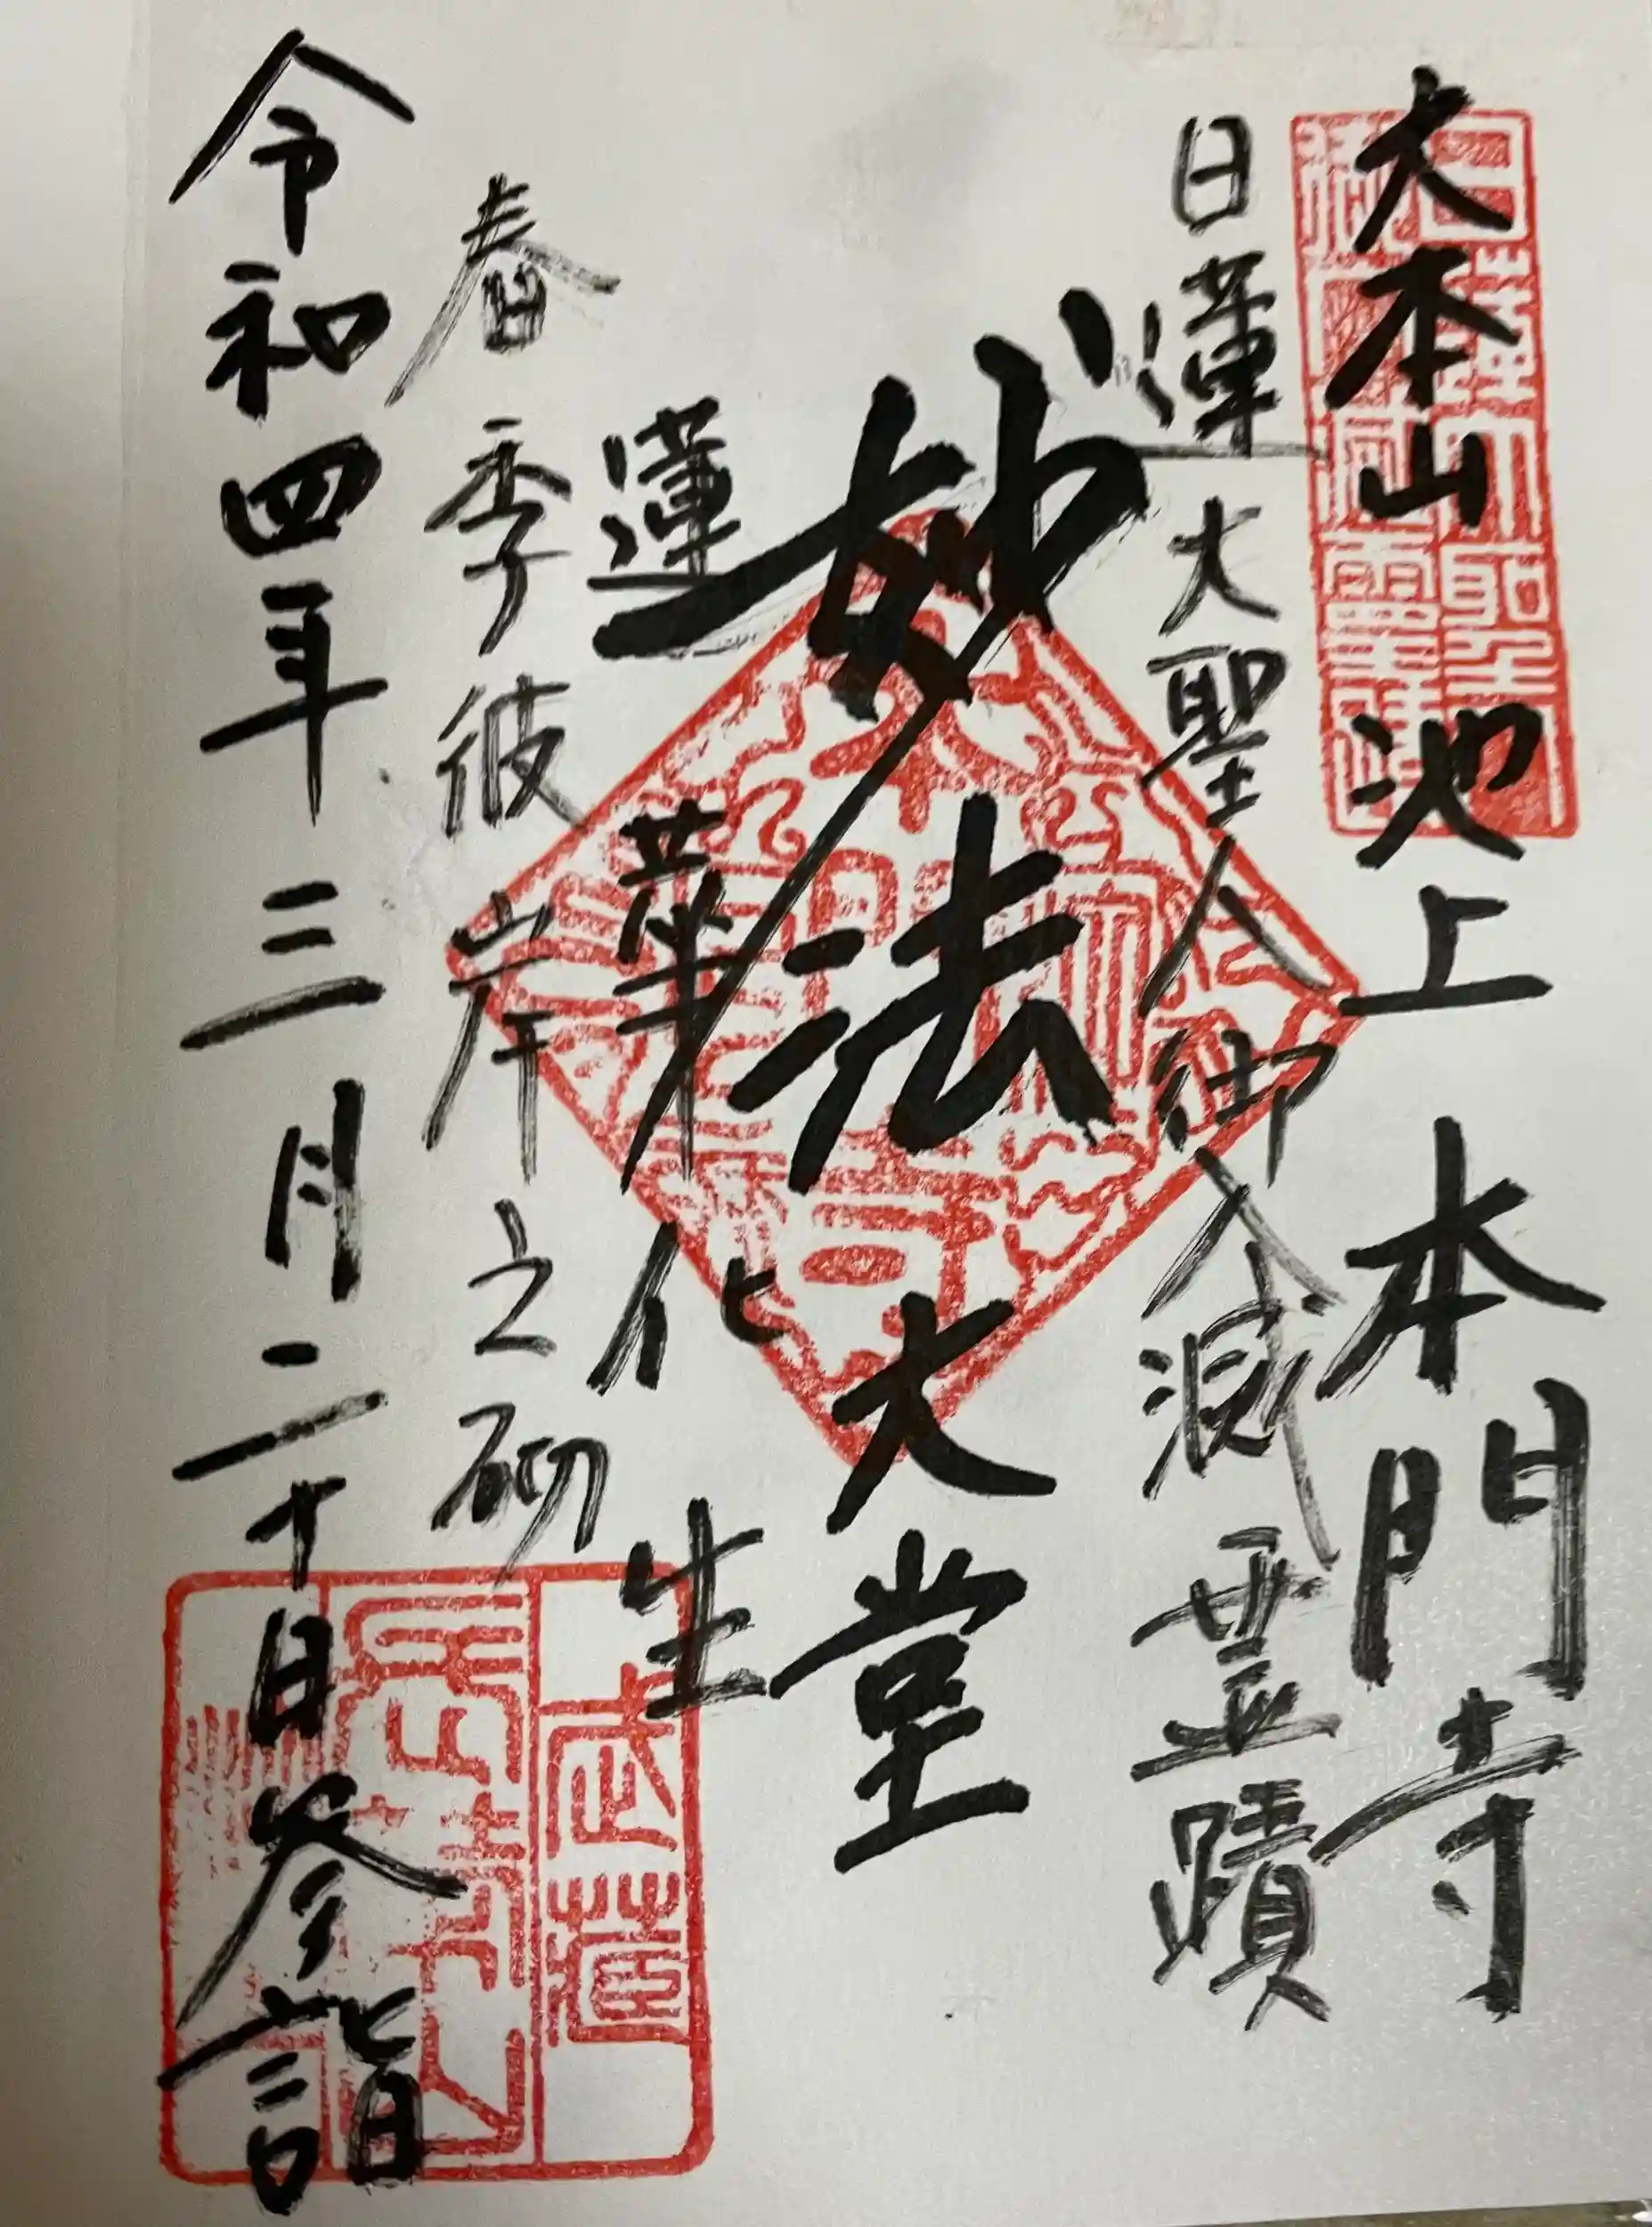 大本山 池上 本門寺
日蓮大聖人御入滅霊蹟
妙法
大堂
蓮華化生
春季彼岸之砌
令和四年三月二十日参詣
日蓮大聖
武蔵